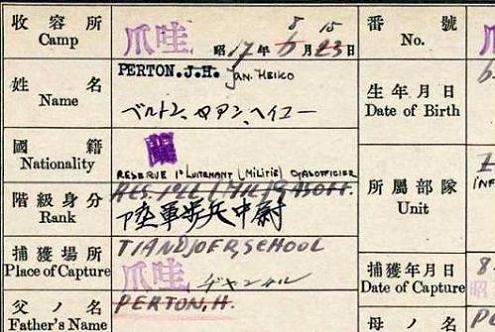 收容所
Camp
爪哇
昭17年6月23日
8 15
番號
No.
姓名
Name
PERTON.J.H. JAN.HEIKO
ペルトン、ヤアン、ヘイコー
生年月日
Date of Birth
國籍
Nationality
蘭
RESERVE 1e LUITENANT (MILITIE) GASOFFICIER
階級身分
Rank
RES. 1e L (MIL) GASOFF.
陸軍歩兵中尉
所屬部隊
Unit
INF
捕獲場所
Place of Capture
TJANDJOER, SCHOOL
爪哇
チャンジル
捕獲年月日
Date of Capture
8.
昭
父ノ名
Father's Name
PERTON, H.
母ノ名